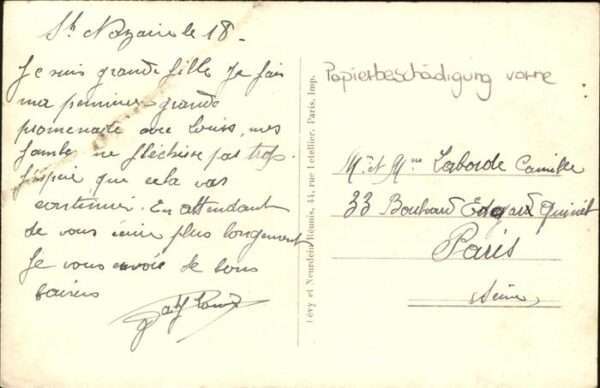 St Nazaire le 18-
Je suis grande fille Je fais
ma première grande
promenade avec Louis, mes
jambes ne fléchisse pas trop.
J'espère que cela vas
continuer. En attendant
de vous écrire plus longement
Je vous envoie de bons
baisers
Lévy et Neurdein Réunis, 44, rue Letellier, Paris, Imp.
Papierbeschädigung vorne
Mr et Mme Laborde Camille
33 Boulvard Edgard Quinet
Paris
Seine